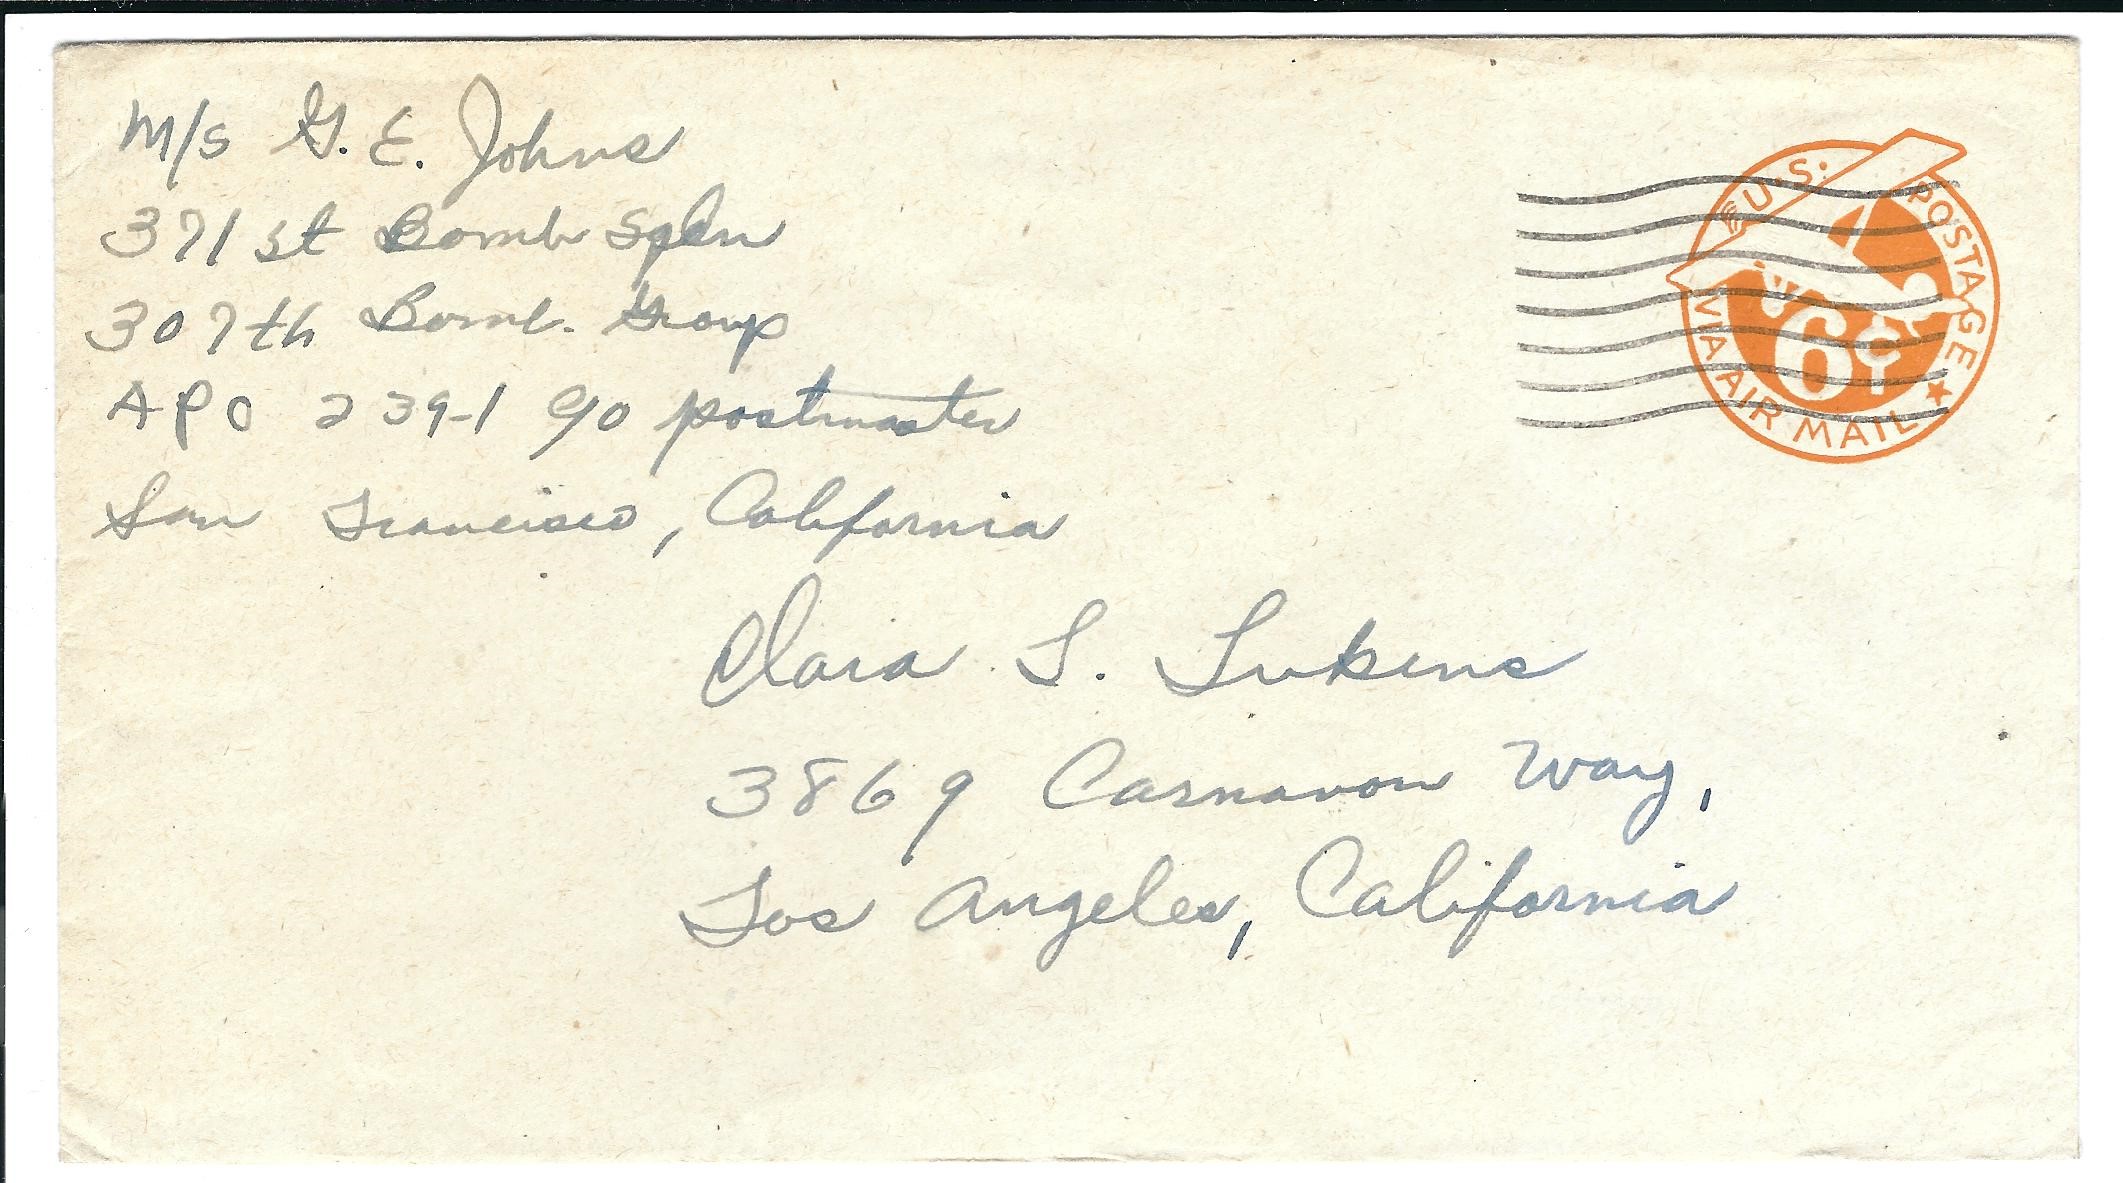 M/S G. E. Johns
371st Bomb Sqdn
307th Bomb. Group
APO 239-1 c/o postmaster
San Francisco, California
U.S. POSTAGE
6¢
VIA AIR MAIL
Clara L. Lukens
3869 Carnavon Way,
Los Angeles, California